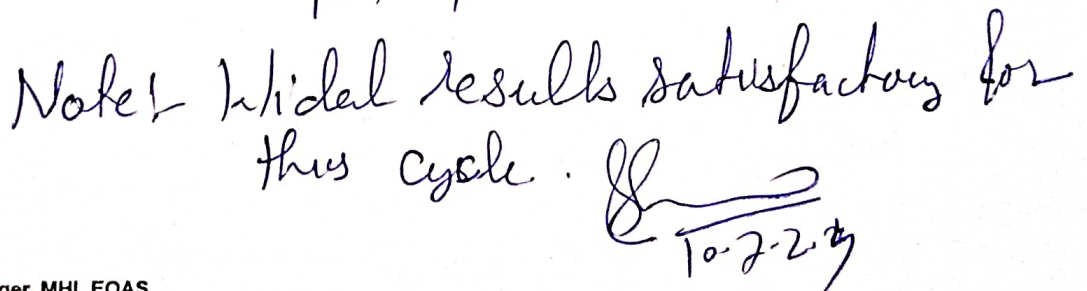 Note:- Widal results satisfactory for
this cycle.
ger MHL EQAS